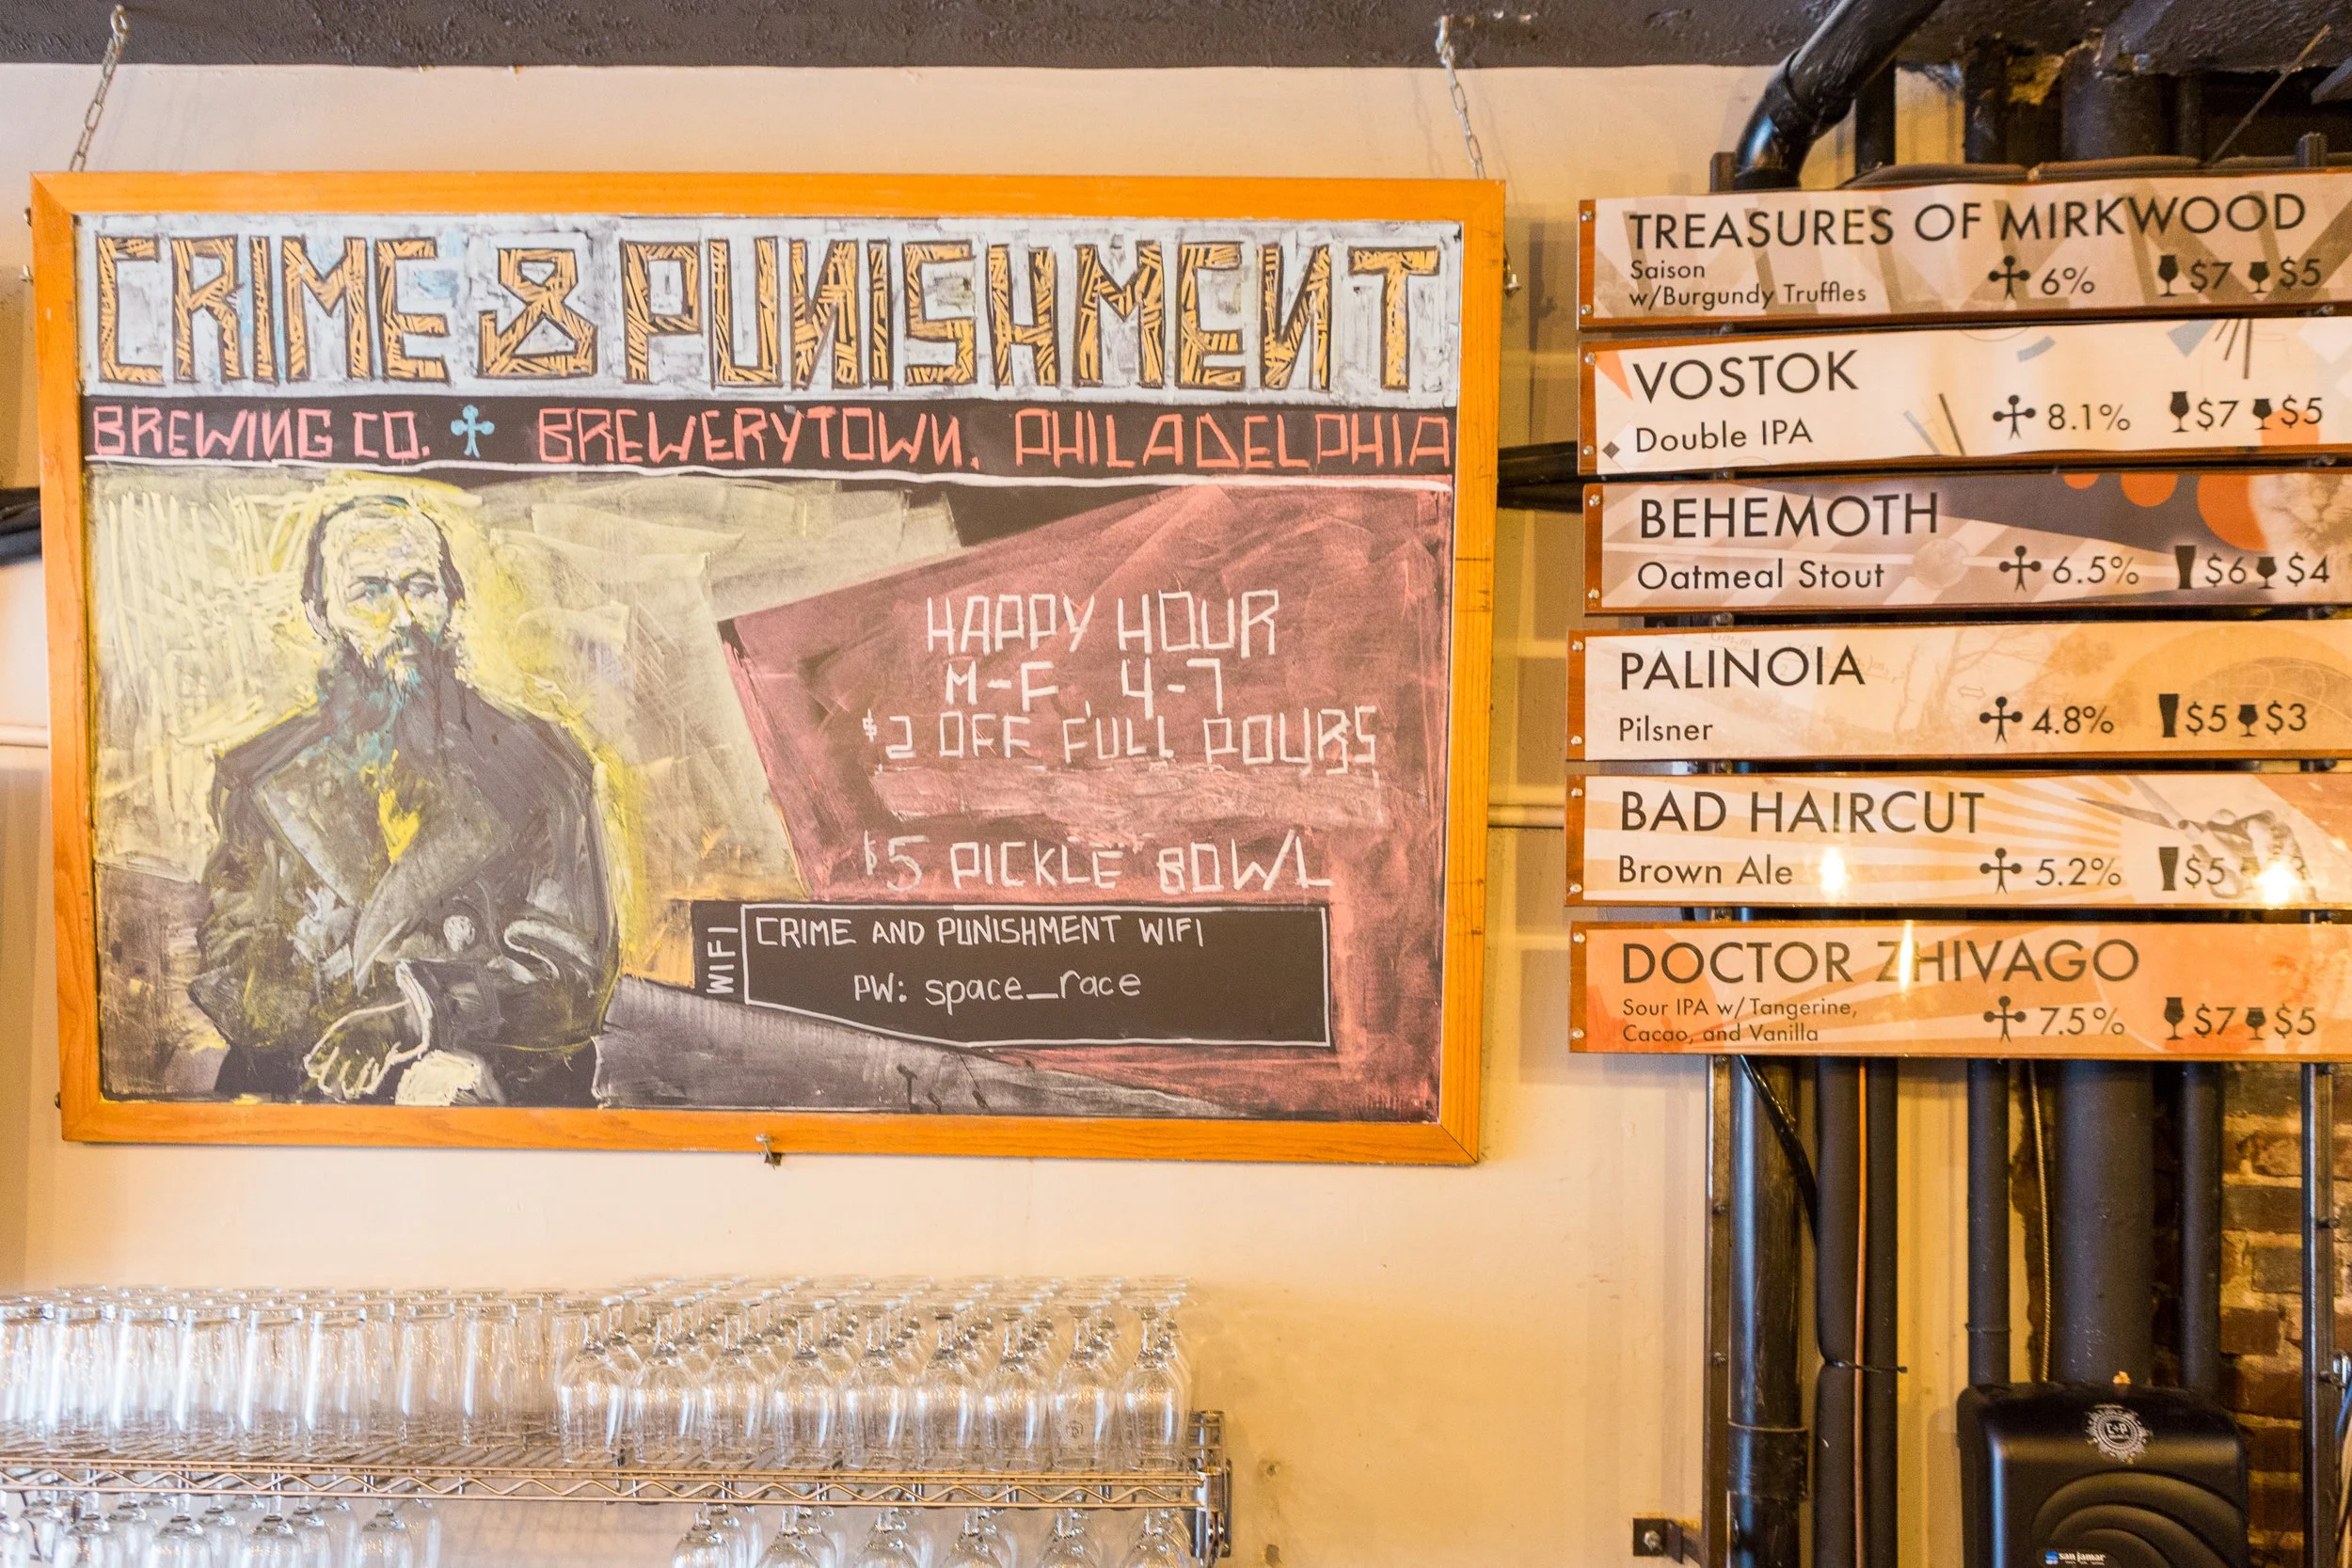 CRIME & PUNISHMENT
BREWING CO. BREWERYTOWN, PHILADELPHIA
HAPPY HOUR
M-F, 4-7
$2 OFF FULL POURS
$5 PICKLE BOWL
WIFI
CRIME AND PUNISHMENT WIFI
PW: space_race
TREASURES OF MIRKWOOD
Saison
w/Burgundy Truffles 6% $7 $5
VOSTOK
Double IPA 8.1% $7 $5
BEHEMOTH
Oatmeal Stout 6.5% $6 $4
PALINOIA
Pilsner 4.8% $5 $3
BAD HAIRCUT
Brown Ale 5.2% $5
DOCTOR ZHIVAGO
Sour IPA w/Tangerine,
Cacao, and Vanilla 7.5% $7 $5
san jamar